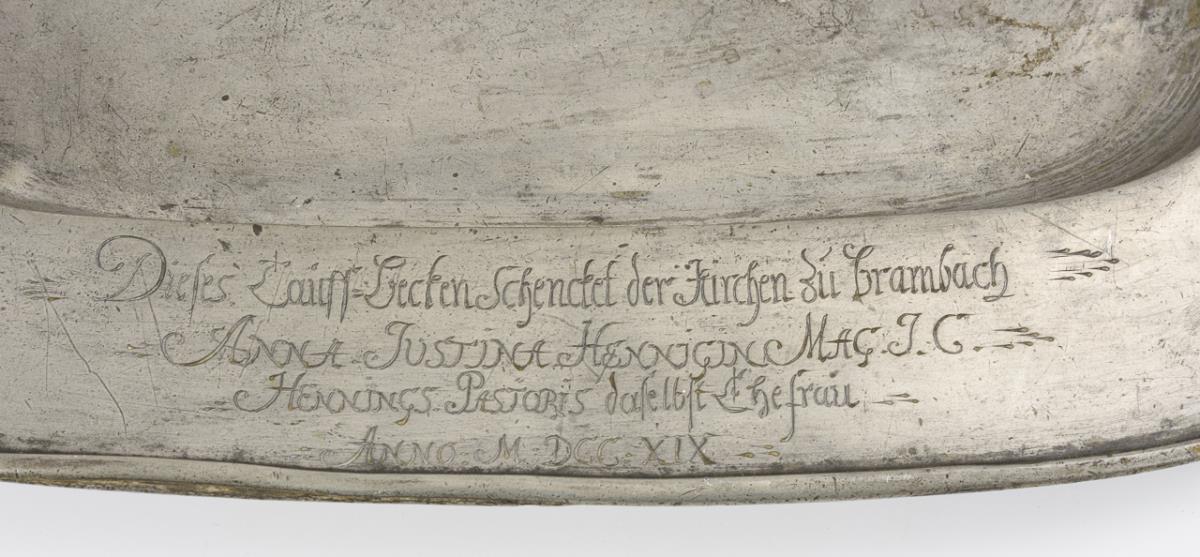 Dieses Tauff-Becken schencket der Kirchen zu Brambach
ANNA JUSTINA HENNIGIN MAG. J. C
HENNINGS PASTORIS daselbst Ehefrau
ANNO M DCC XIX